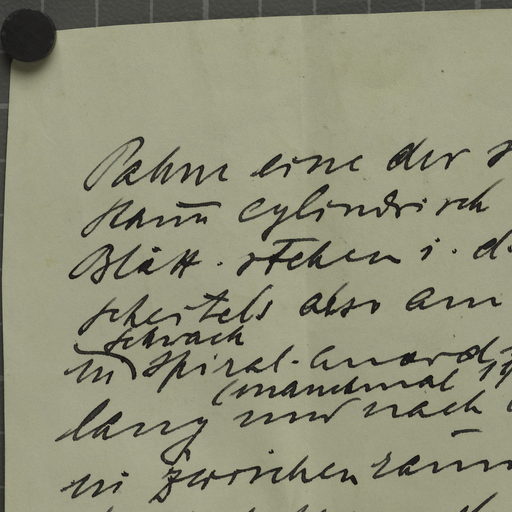 Palme eine der
Stamm cylindrisch
Blätt. stehen i. d
scheitels also am
schwach
in spiral. Anord
(manchmal
lang und nach
in Zwischenräum